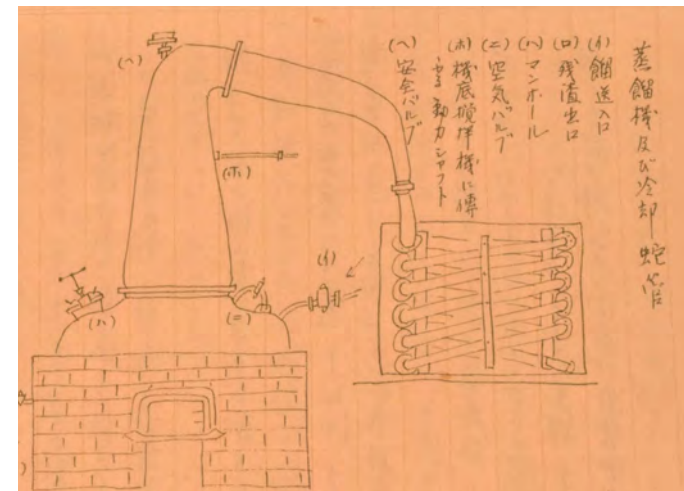 蒸餾機及び冷却蛇管
(イ)餾送入口
(ロ)残渣出口
(ハ)マンホール
(ニ)空気バルブ
(ホ)機底攪拌機に傳
動力シャフト
(ヘ)安全バルブ
(ヘ)
(ホ)
(イ)
(ハ)
(ニ)
)